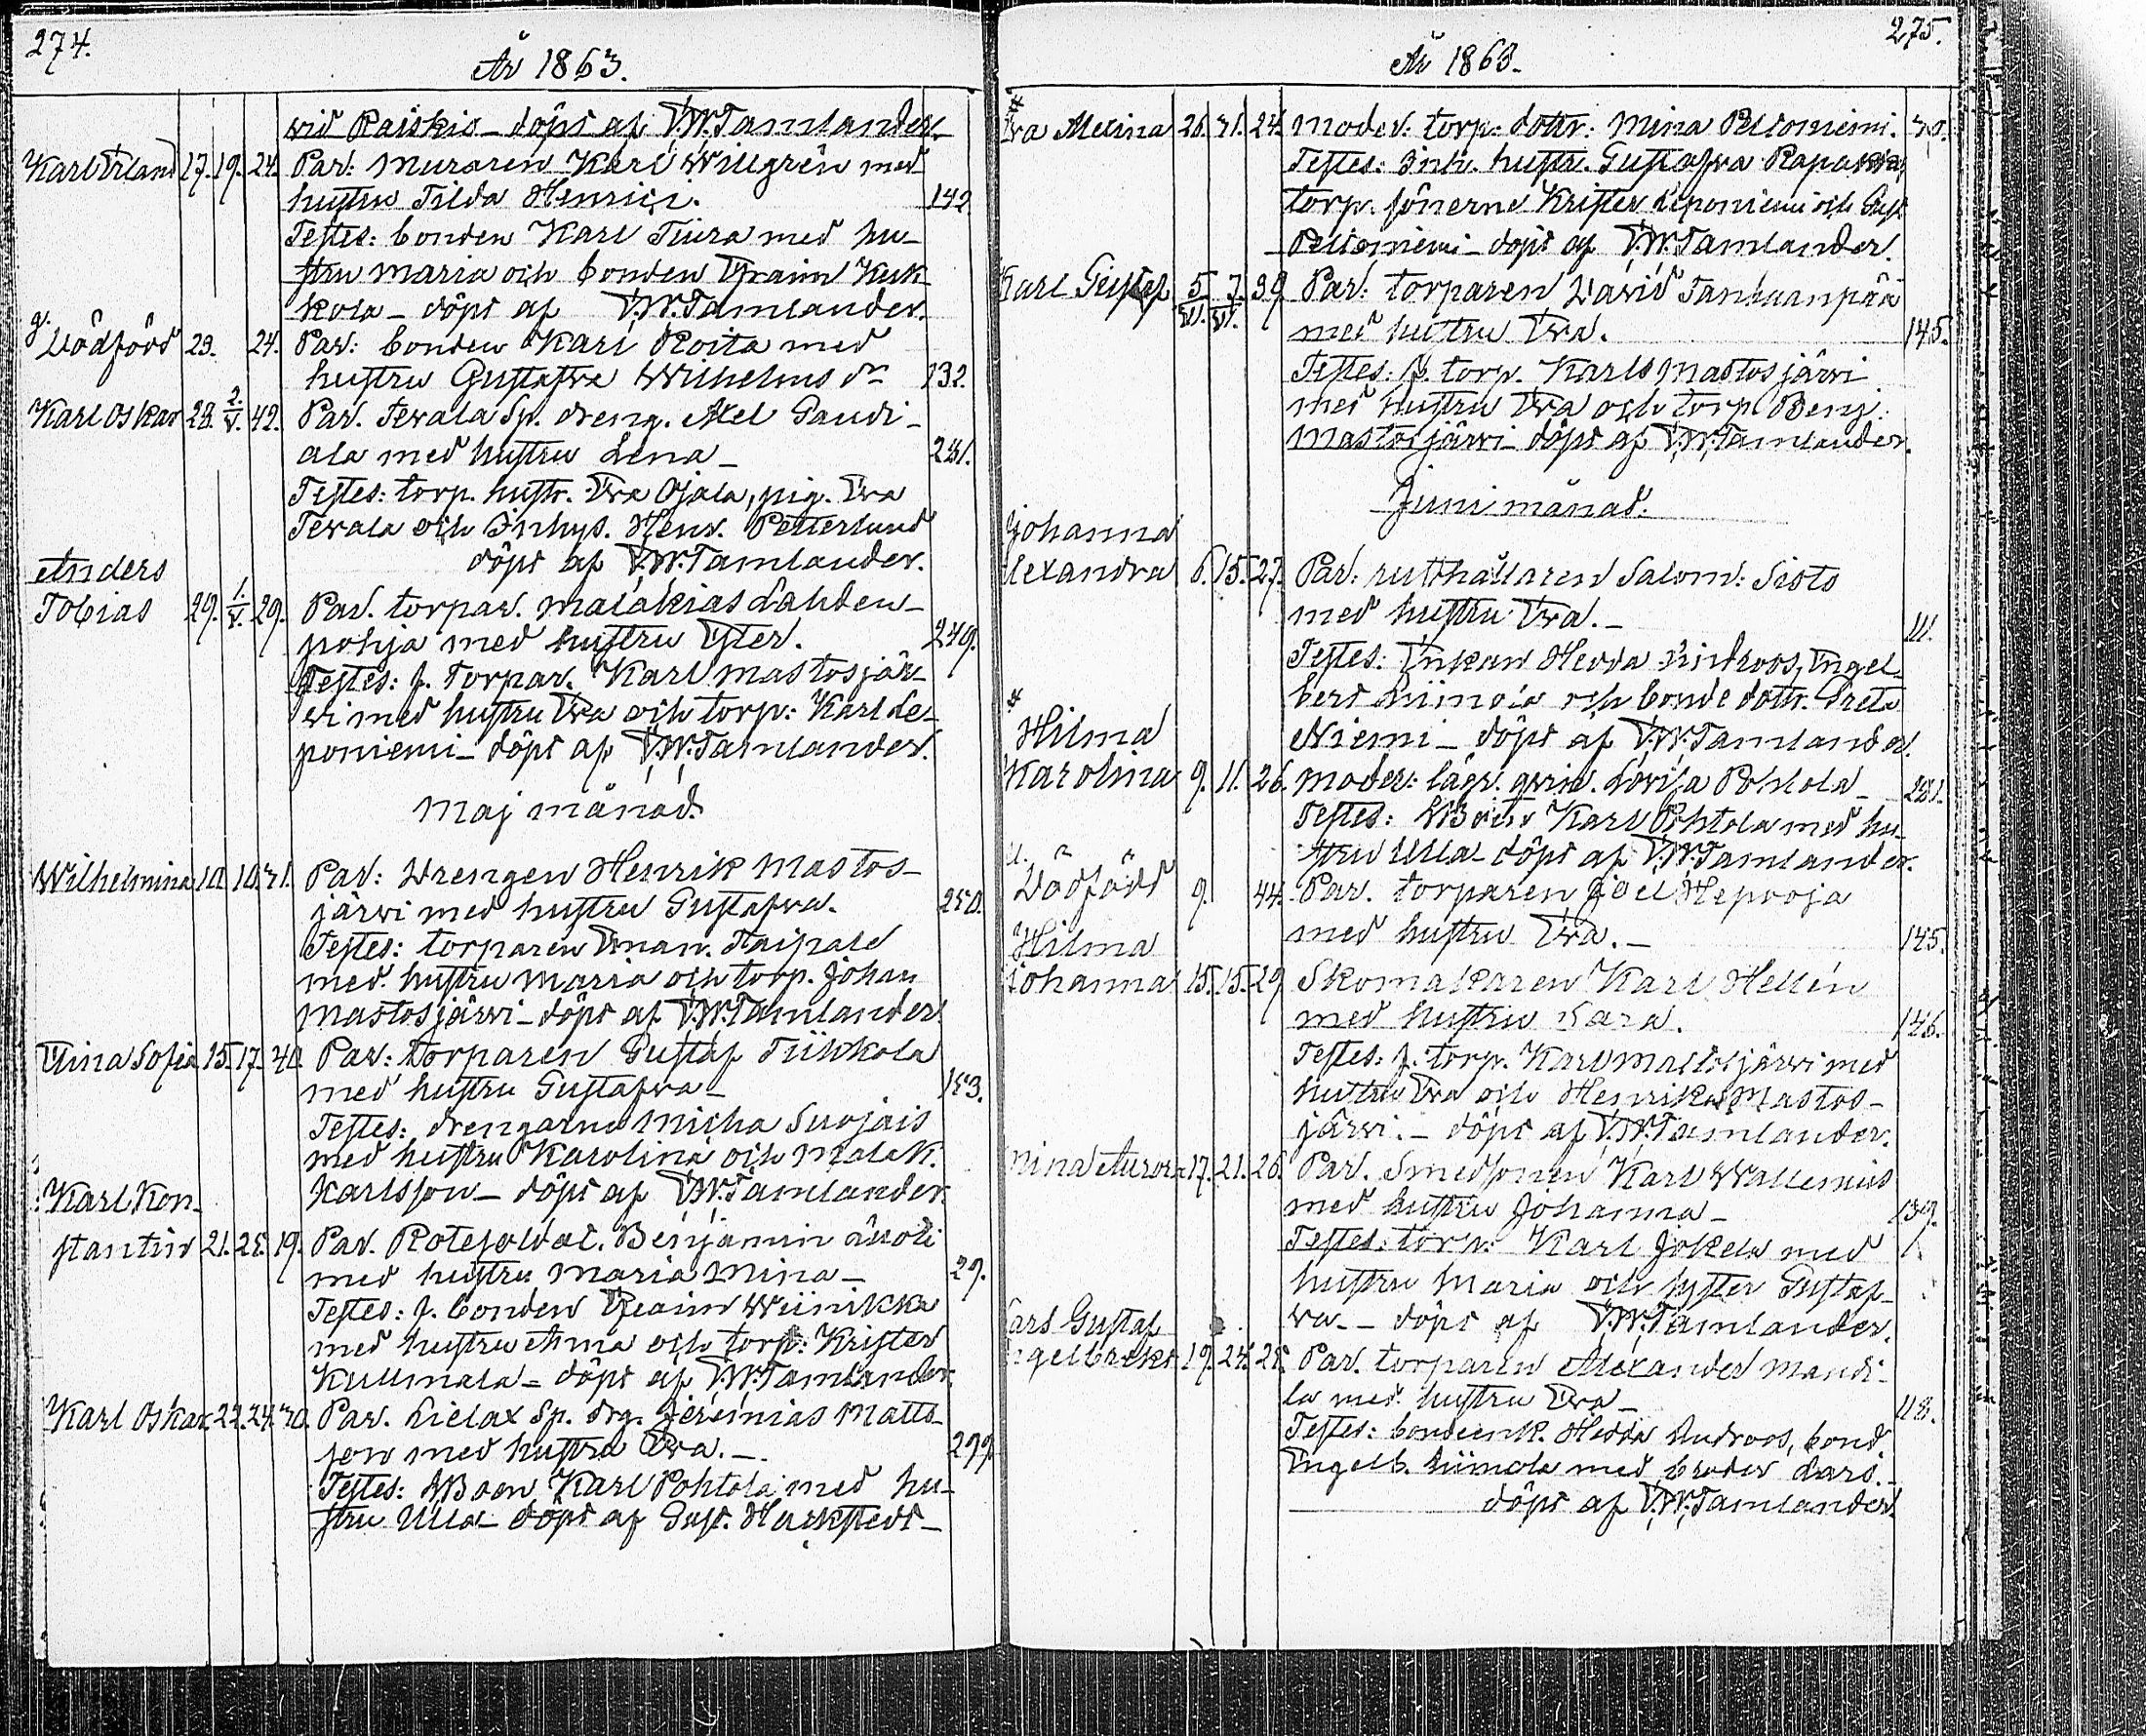 274.
År 1863.
wid Raiskio - döpt af F.W. Tamlander.
Karl Erland 17. 19. 24. Par: Muraren Karl Willgrén med
hustru Tilda Henrici. 142
Testes: bonden Karl Tiura med hu-
stru Maria och bonden Efraim Kuk-
kola - döpt af F.W. Tamlander.
g. Dödförd 23. 24. Par: bonden Karl Roita med
hustru Gustafva Wilhelms dr 132.
Karl Oskar 28. 2./V. 42. Par. Tervala Sp. dreng. Axel
ala med hustru Lena -
Testes: torp. hustr. Eva Ojala, pig. Eva
Tervala och Inhys. Henr. Petterlund
döpt af F.W. Tamlander.
Anders
Tobias 29. 1./V. 29. Par. torpar. Malakias Lahden-
pohja med hustru Ester. 249.
Testes: f. Torpar. Karl Mastosjär-
wi med hustru Eva och torp: Karl Le-
poniemi - döpt af F.W. Tamlander.
Maj månad.
Wilhelmina 10. 10. 31. Par: Drengen Henrik Mastos-
järvi med hustru Gustafva. 250.
Testes: torparen Eman. Taipale
med hustru Maria och torp. Johan
Mastosjärwi - döpt af F.W. Tamlander.
Eina Sofia 15. 17. 40. Par: torparen Gustaf Tiihkola
med hustru Gustafva - 153.
Testes: drengarne Micha Suojais
med hustru Karolina och Malak.
Karlsson - döpt af F.W. Tamlander.
Karl Kon-
stantin 21. 25. 19. Par. Rotesoldat. Benjamin
med hustru Maria Mina - 29.
Testes: f. bonden Efraim Wiinikka
med hustru Anna och torp: Krister
Kullmala - döpt af F.W. Tamlander.
Karl Oskar 22. 24. 30. Par. Lielax Sp. drg. Jeremias Matts-
son med hustru Eva. - 299.
Testes: Karl Pohtola med hu-
stru Ulla - döpt af Gust. Harkstedt -
275.
År 1863.
*
Eva Alexina 26. 31. 24. Moder: torp: dottr: Mina Peltoniemi. 30.
Testes: Inh. hustr. Gustafva Rapakko,
torp. sönerne Krister Leponiemi och Gust
Peltoniemi - döpt af F.W. Tamlander.
Karl Gustaf 5/VI. 7/VI. 39. Par: torparen David Tanhuanpää
med hustru Eva. 145.
Testes: f. torp. Karl Mastosjärvi
med hustru Eva och torp Benj.
Mastosjärvi - döpt af F.W. Tamlander.
Juni månad.
Johanna
Alexandra 6. 15. 27. Par: rusthållaren Salom: Sisto
med hustru Eva. - 111.
Testes: Enkan Hedda Lindroos, Engel-
bert Liimola och bonde dottr. Greta
Niemi - döpt af F.W. Tamlander.
*
Hilma
Karolina 9. 11. 26. Moder: lägr. qvin. Lovisa Pohtola - 281.
Testes: Karl Pohtola med hu-
stru Ulla - döpt af F.W. Tamlander.
Dödförd 9. 44. Par. torparen Joel Hepooja
med hustru Eva. - 145.
Hilma
Johanna 15. 15. 29. Skomakaren Karl Hellén
med hustru Sara. 146.
Testes: f. torp. Karl Mastosjärwi med
hustru Eva och Henrik Mastos-
järvi. - döpt af F.W. Tamlander.
Mina Aurora 17. 21. 26. Par. Smedsonen Karl Wallenius
med hustru Johanna - 139.
Testes: torp: Karl Jokela med
hustru Maria och syster Gustaf-
va. - döpt af F.W. Tamlander.
Lars Gustaf
Engelbrekt 19. 24. 25. Par. torparen Alexander Mandi-
la med hustru Eva - 118.
Testes: bondeenk. Hedda Lindroos, bond.
Engelb. Liimola med broder Lars. -
döpt af F.W. Tamlander.